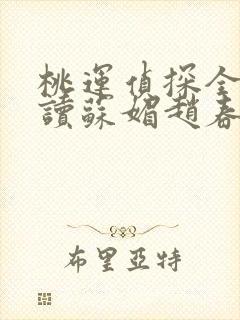 桃運偵探全
讀蘇媚趙春
布里亞特